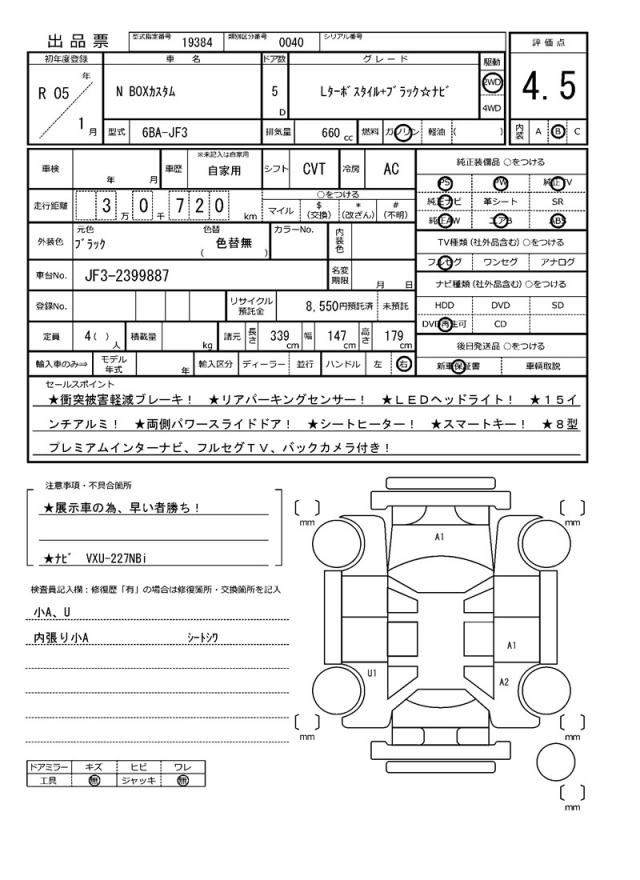 出品票 型式指定番号 19384 類別区分番号 0040 シリアル番号
初年度登録 車名 ドア数 グレード 駆動 評価点
R 05 年 1 月 N BOXカスタム 5 D Lターボスタイル+ブラック☆ナビ 2WD 4WD 4.5
型式 6BA-JF3 排気量 660 cc 燃料 ガソリン 軽油 ( ) 内装 A B C
車検 年 月 車歴 ※未記入は自家用 自家用 シフト CVT 冷房 AC 純正装備品 ○をつける
PS PW 純正TV
走行距離 3 万 0 千 7 2 0 km ○をつける マイル $ (交換) * (改ざん) # (不明) 純正ナビ 革シート SR
純正AW エアB ABS
外装色 元色 ブラック 色替 色替無 ( ) カラーNo. 内装色 TV種類 (社外品含む) ○をつける
フルセグ ワンセグ アナログ
車台No. JF3-2399887 名変期限 月 日 ナビ種類 (社外品含む) ○をつける
登録No. リサイクル預託金 8,550円預託済 未預託 HDD DVD SD
DVD再生可 CD
定員 4( ) 人 積載量 kg 諸元 長さ 339 cm 幅 147 cm 高さ 179 cm 後日発送品 ○をつける
輸入車のみ⇒ モデル年式 年 輸入区分 ディーラー 並行 ハンドル 左 右 新車保証書 車輌取説
セールスポイント
★衝突被害軽減ブレーキ! ★リアパーキングセンサー! ★LEDヘッドライト! ★15イ
ンチアルミ! ★両側パワースライドドア! ★シートヒーター! ★スマートキー! ★8型
プレミアムインターナビ、フルセグTV、バックカメラ付き!
注意事項・不具合箇所
★展示車の為、早い者勝ち!
★ナビ VXU-227NBi
検査員記入欄:修復歴「有」の場合は修復箇所・交換箇所を記入
小A、U
内張り小A シートシワ
ドアミラー キズ ヒビ ワレ
工具 無 ジャッキ 無
[ ] mm [ ] mm
A1
A1
U1 A2
[ ] mm [ ] mm
[ ] mm